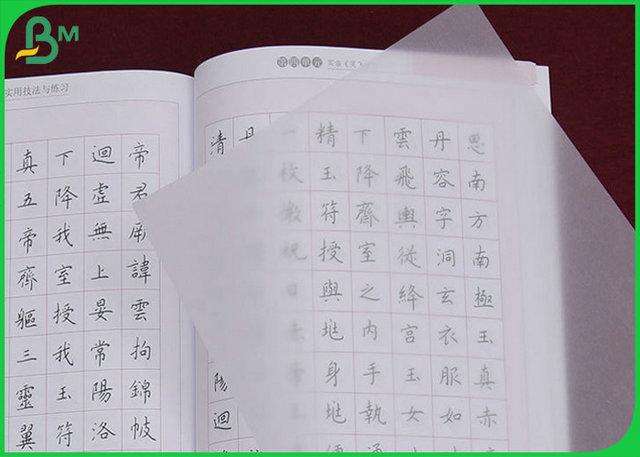 BM
实用技法与练习
第四单元 实临《灵
思南方南極玉真赤
丹容字洞玄衣服如
雲飛輿從絳宮玉女
下降齋室之內手執
精玉符授與垗身垗
一枚
丹
清
陽迴
帝君厥諱雲拘錦帔
迴虛無上晏常陽洛
下降我室授我玉符
真五帝齊軀三靈翼